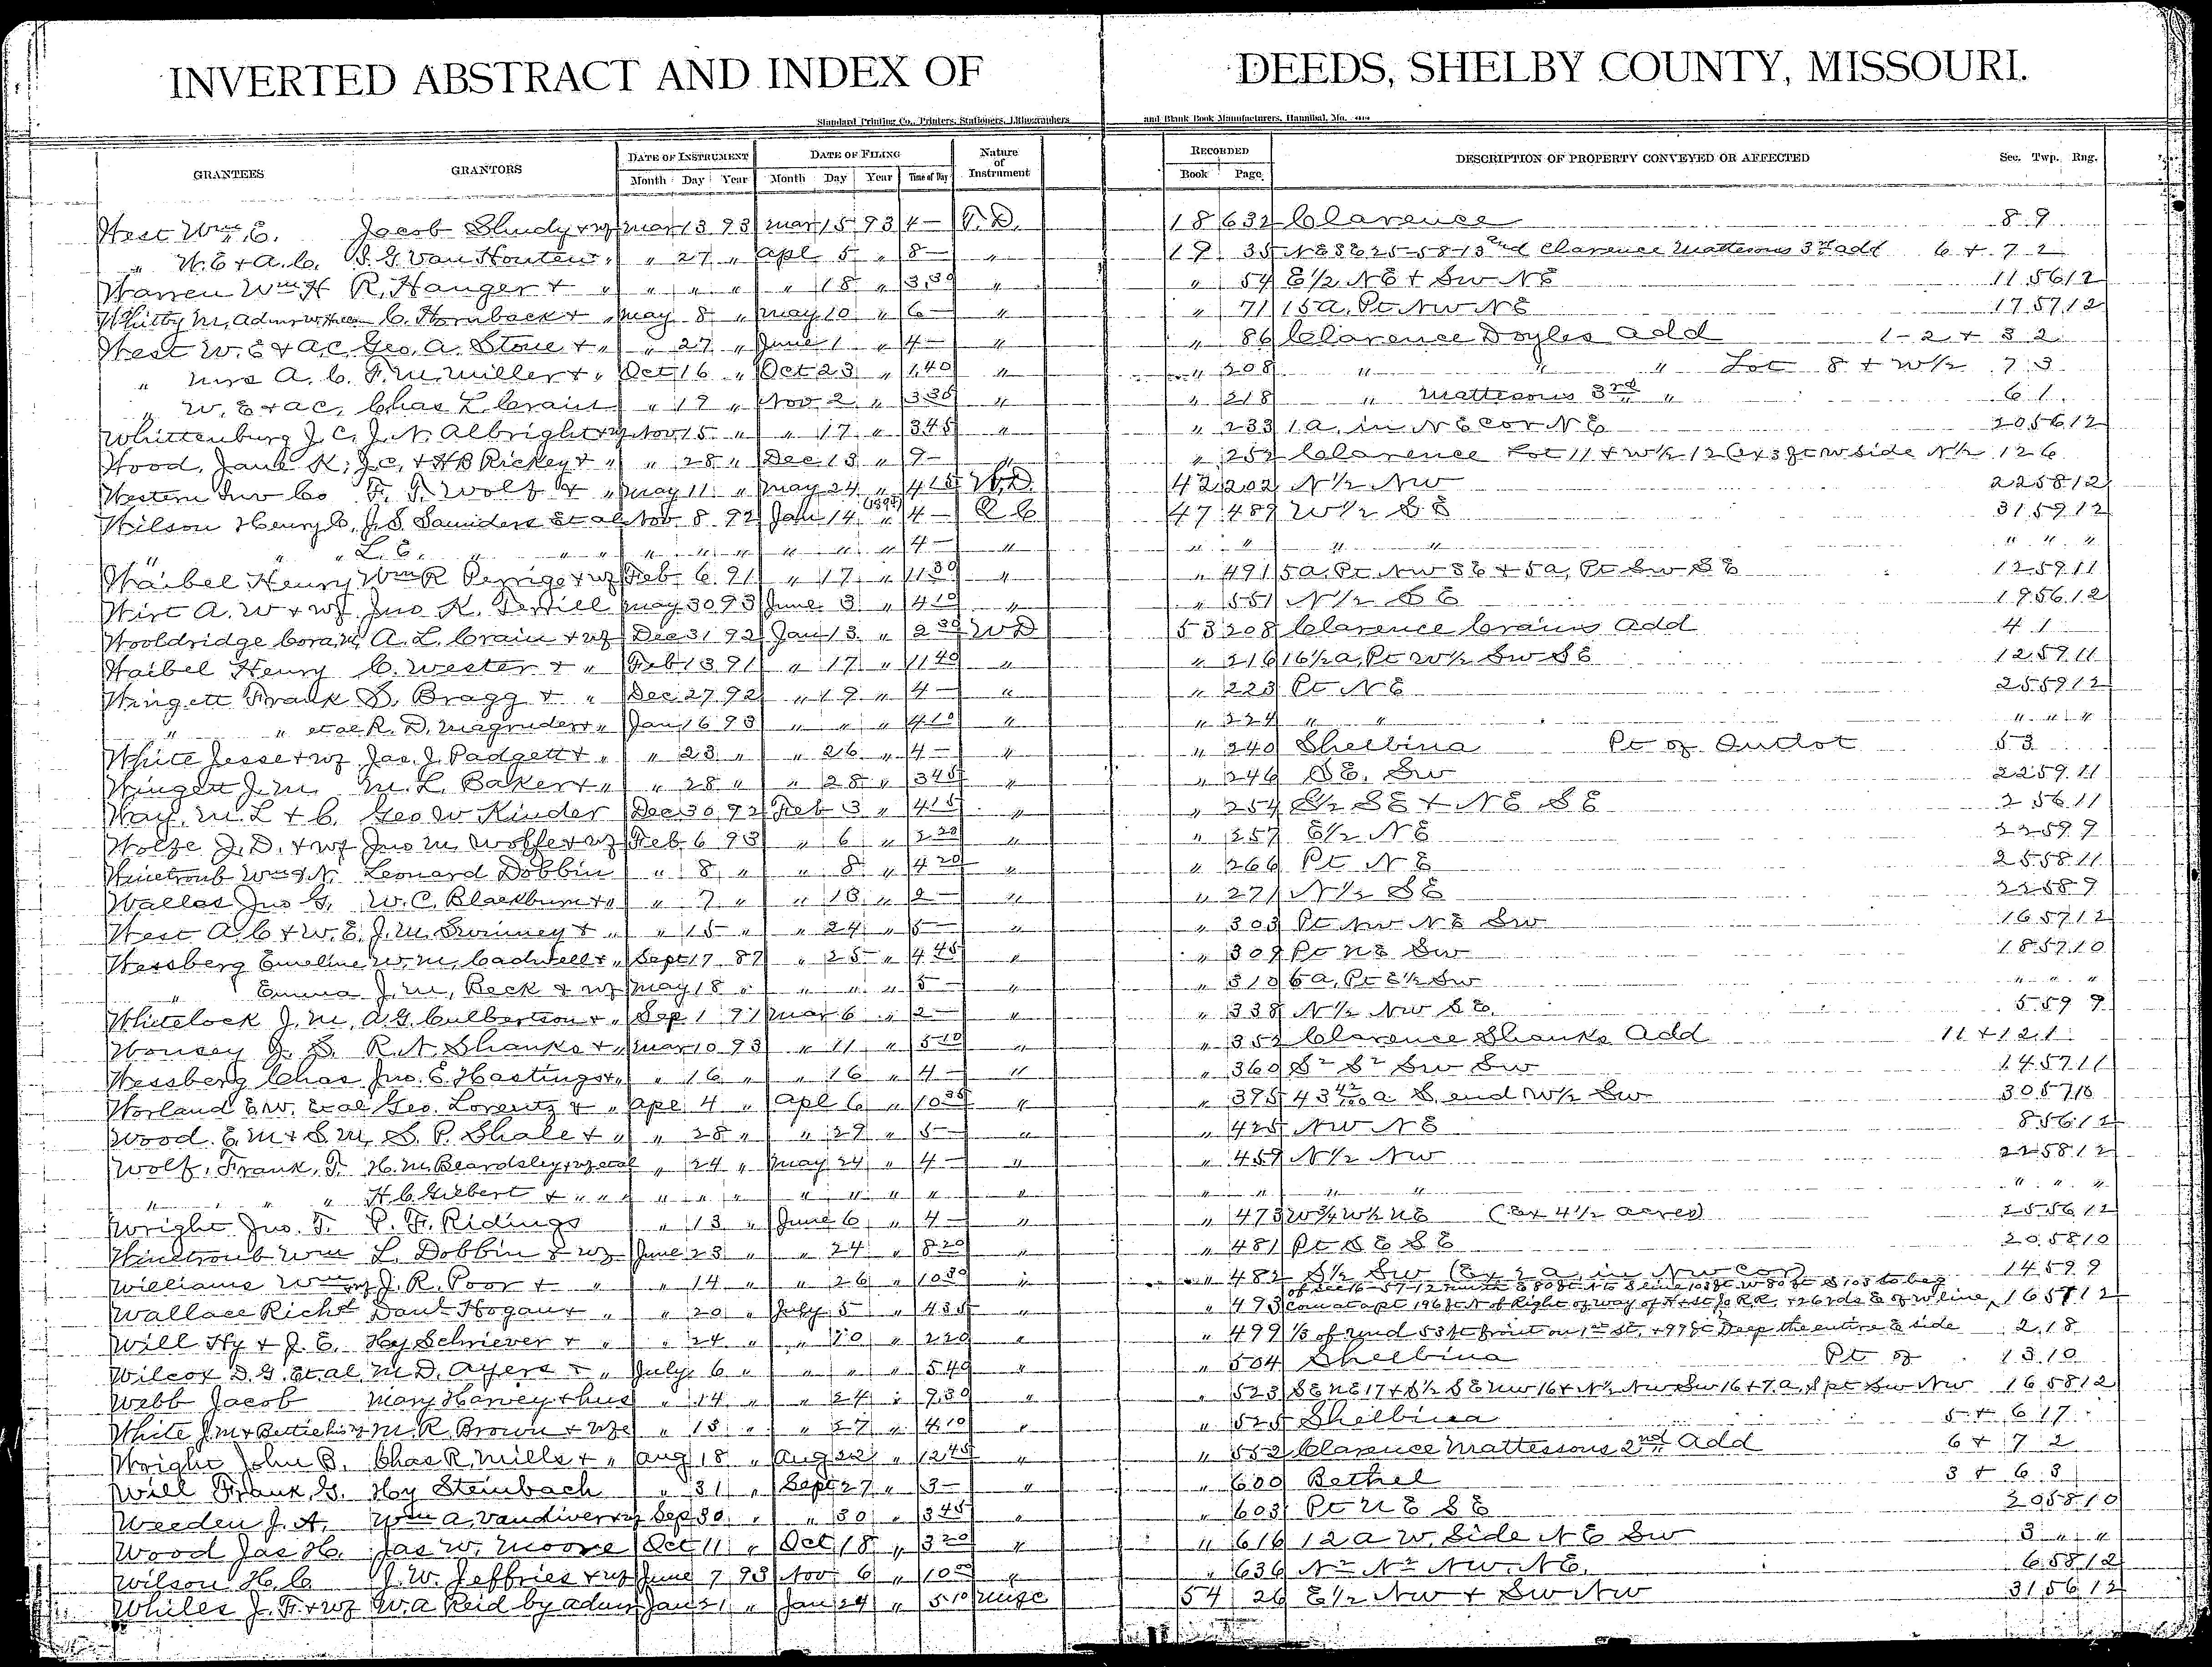 INVERTED ABSTRACT AND INDEX OF DEEDS, SHELBY COUNTY, MISSOURI.
Standard Printing Co., Printers, Stationers, Lithographers and Blank Book Manufacturers, Hannibal, Mo.
GRANTEES GRANTORS DATE OF INSTRUMENT DATE OF FILING Nature of Instrument RECORDED DESCRIPTION OF PROPERTY CONVEYED OR AFFECTED Sec. Twp. Rng.
Month Day Year Month Day Year Time of Day Book Page
West Wm. E. Jacob Shudy + wf Mar 13 93 Mar 15 93 4 – T.D. 18 632 Clarence 8 9
" W. E + A. C. S. G. Van Houten " " 27 " Apl 5 " 8 – " 19 35 NE SE 25-58-13 and Clarence Mattesons 3rd add 6 + 7 2
Warren Wm H R. Hanger + " " " " " 18 " 3.30 " " 54 E½ NE + SW NE 11 56 12
Whitby M, Admr C. Hornback + " May 8 " May 10 " 6 – " " 71 15a. Pt NW NE 17 57 12
West W. E + A.C. Geo. A. Stone + " " 27 " June 1 " 4 – " " 86 Clarence Doyles add 1 - 2 + 3 2
" Mrs A. C. F. M. Miller + " Oct 16 " Oct 23 " 1 40 " " 208 " " " Lot 8 + W½ 7 3
" W. E + A C. Chas L Crain " 19 " Nov 2 " 3 35 " " 218 " Mattesons 3rd " 6 1
Whittenburg J. C. J. N. Albright + wf Nov 15 " " 17 " 3 45 " " 233 1 a. in NE cor NE 20 56 12
Wood, Jane K; J.C. + H B Rickey + " " 28 " Dec 13 " 9 – " " 252 Clarence Lot 11 + W½ 12 (Ex 3 ft W side N½ 12 6
Western Inv Co F. T. Wolf + " May 11 " May 24 " 4 15 W.D. 42 202 N½ NW 22 58 12
Wilson Henry C. J. S. Saunders Et al Nov 8 92 Jan 14 (1893) " 4 – Q C 47 489 W½ SE 31 59 12
" " " L. E. " " " " " " " " " 4 – " " " " " " " "
Waibel Henry Wm R Perrigo + wf Feb 6 91 " 17 " 11 30 " " 491 5a. Pt NW SE + 5a, Pt SW SE 12 59 11
Wirt A. W + wf Jno K. Terrill May 30 93 June 3 " 4 10 " " 551 N½ SE 19 56 12
Wooldridge Cora, M, A. L. Crain + wf Dec 31 92 Jan 13 " 2 30 W D 53 208 Clarence Crains add 4 1
Waibel Henry C. Wester + " Feb 13 91 " 17 " 11 40 " " 216 16½ a, Pt W½ SW SE 12 59 11
Wingett Frank S. Bragg + " Dec 27 92 " 19 " 4 – " " 223 Pt NE 25 59 12
" " et al R. D. Magruder + " Jan 16 93 " " " 4 10 " " 224 " " " " "
White Jesse + wf Jas. J. Padgett + " " 23 " " 26 " 4 – " " 240 Shelbina Pt of Outlot 53
Wingett J. M. M. L. Baker + " " 28 " " 28 " 3 45 " " 246 SE. SW 22 59 11
Way, M. L + C. Geo W Kinder Dec 30 92 Feb 3 " 4 15 " " 254 S½ SE + NE SE 2 56 11
Wolfe J. D. + wf Jno M. Wolfe + wf Feb 6 93 " 6 " 2 20 " " 257 E½ NE 22 59 9
Winetroub Wm + N. Leonard Dobbin " 8 " " 8 " 4 20 " " 266 Pt NE 25 58 11
Wallas Jno G. W. C. Blackburn + " " 7 " " 13 " 2 – " " 271 N½ SE 22 58 9
West A. C + W. E. J. M. Swinney + " " 15 " " 24 " 5 – " " 303 Pt NW NE SW 16 57 12
Wessberg Emeline W. M. Cadwell + " Sept 17 87 " 25 " 4 45 " " 309 Pt NE SW 18 57 10
" Emma J. M. Beck + wf May 18 " " " " 5 – " " 310 6 a. Pt E½ SW " " "
Whitelock J. M. A. G. Culbertson + " Sep 1 91 Mar 6 " 2 – " " 338 N½ NW SE 5 59 9
Wonsey J. S. R. N Shanks + " Mar 10 93 " 11 " 5 10 " " 352 Clarence Shanks Add 11 + 12 1
Wessberg Chas Jno. E. Hastings + " " 16 " " 16 " 4 – " " 360 S² S² SW SW 14 57 11
Worland E. W. Et al Geo. Lorentz + " Apl 4 " Apl 6 " 10 35 " " 395 43 42/100 a S. end W½ SW 30 57 10
Wood E. M + S. M. S. P. Shale + " " 28 " " 29 " 5 – " " 425 NW NE 8 56 12
Wolf, Frank, T. H. M. Beardsley + wf et al " 24 " May 24 " 4 – " " 459 N½ NW 22 58 12
" " " H. C. Gilbert + " " " " " " " " " " " " " " " " " "
Wright Jno. T. P. F. Ridings " 13 " June 6 " 4 – " " 473 W¾ W½ NE (Ex 4½ acres) 25 56 12
Winetroub Wm L. Dobbin + wf June 23 " " 24 " 8 20 " " 481 Pt SE SE 20 58 10
Williams Wm + wf J. R. Poor + " " 14 " " 26 " 10 30 " " 482 S½ SW (Ex 2 a. in NW Cor) 14 59 9
Wallace Richd Danl Hogan + " " 20 " July 5 " 4 35 " " 493 of Sec 16-57-12 E 80 ft N to S line 103 ft W 80 ft S 103 to beg
Com at a pt 196 ft N of Right of way of H + St Jo R R. + 26 rds E of W line, 16 57 12
Will Hy + J. E. Hy Schriever + " " 24 " " 10 " 2 20 " " 499 ⅓ of und 53 ft front on 1st St, + 99 ft Deep the entire E side 2 18
Wilcox D. G. Et al. M. D. Ayers + " July 6 " " " " 5 40 " " 504 Shelbina Pt of 13 10
Webb Jacob Mary Harvey + hus " 14 " " 24 " 9 30 " " 523 SE NE 17 + S½ SE NW 16 + N½ NW SW 16 + 7. a, S pt SW NW 16 58 12
White J. M + Bettie his wf M. R. Brown + wfe " 13 " " 27 " 4 10 " " 525 Shelbina 5 + 6 17
Wright John B. Chas R. Mills + " Aug 18 " Aug 22 " 12 45 " " 552 Clarence Mattessons 2nd Add 6 + 7 2
Will Frank, G. Hy Steinbach " 31 " Sept 27 " 3 – " " 600 Bethel 3 + 6 3
Weeden J. A. Wm A. Vandiver + wf Sep 30 " " 30 " 3 45 " " 603 Pt NE SE 20 58 10
Wood Jas H. Jas W. Moore Oct 11 " Oct 18 " 3 20 " " 616 12 a W. Side NE SW 3 " "
Wilson H. C J. W. Jeffries + wf June 7 93 Nov 6 " 10 00 " " 636 N² N² NW. NE. 6 58 12
Whiles J. F. + wf W. A Reid by admr Jan 21 " Jan 24 " 5 10 Misc 54 26 E½ NW + SW NW 31 56 12